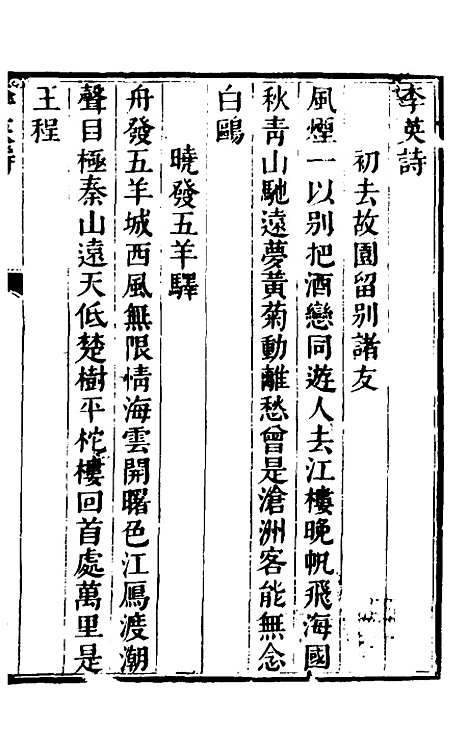 李英詩
初去故園留别諸友
風煙一以别把酒戀同遊人去江樓晚帆飛海國
秋青山馳遠夢黃菊動離愁曾是滄洲客能無念
白鷗
曉發五羊驛
舟發五羊城西風無限情海雲開曙色江鴈渡潮
聲目極秦山遠天低楚樹平柁樓回首處萬里是
王程